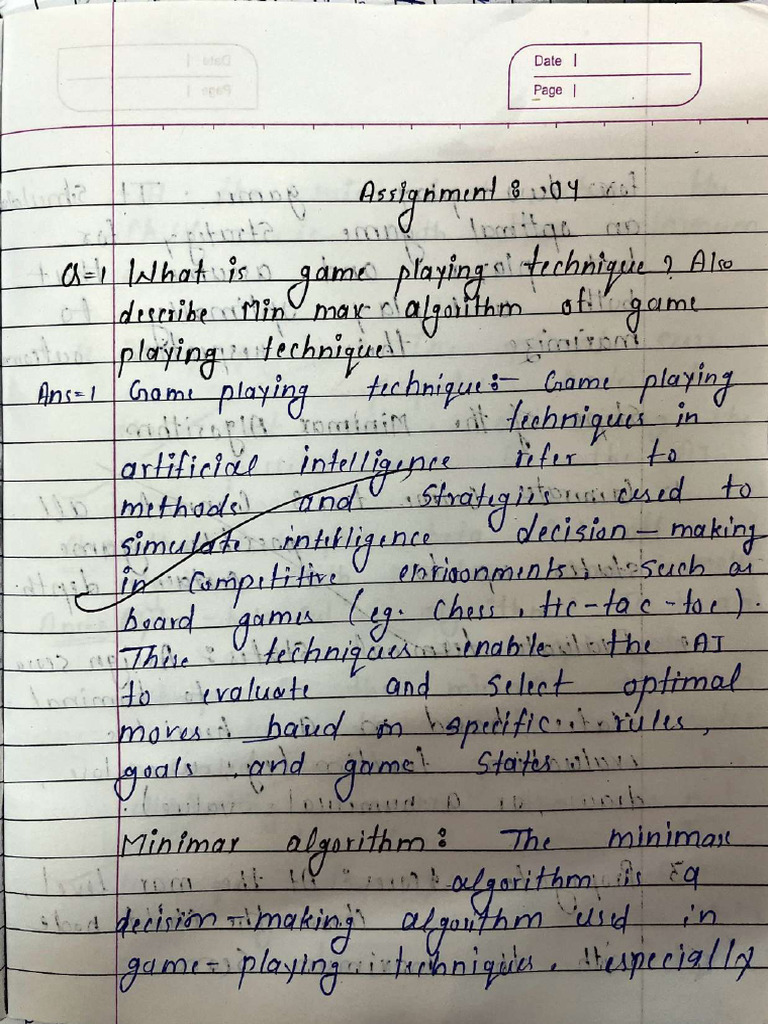 Date
Page
Assignment : 04
Q=1 What is game playing technique? Also
describe Min max algorithm of game
playing technique
Ans=1 Game playing technique:- Game playing
techniques in
artificial intelligence refer to
methods and strategies used to
simulate intelligence decision-making
in competitive environments, such as
board games (eg. chess, tic-tac-toe).
These techniques enable the AI
to evaluate and select optimal
moves based on specific rules,
goals and game states
Minimax algorithm: The minimax
algorithm is a
decision-making algorithm used in
game-playing techniques, especially